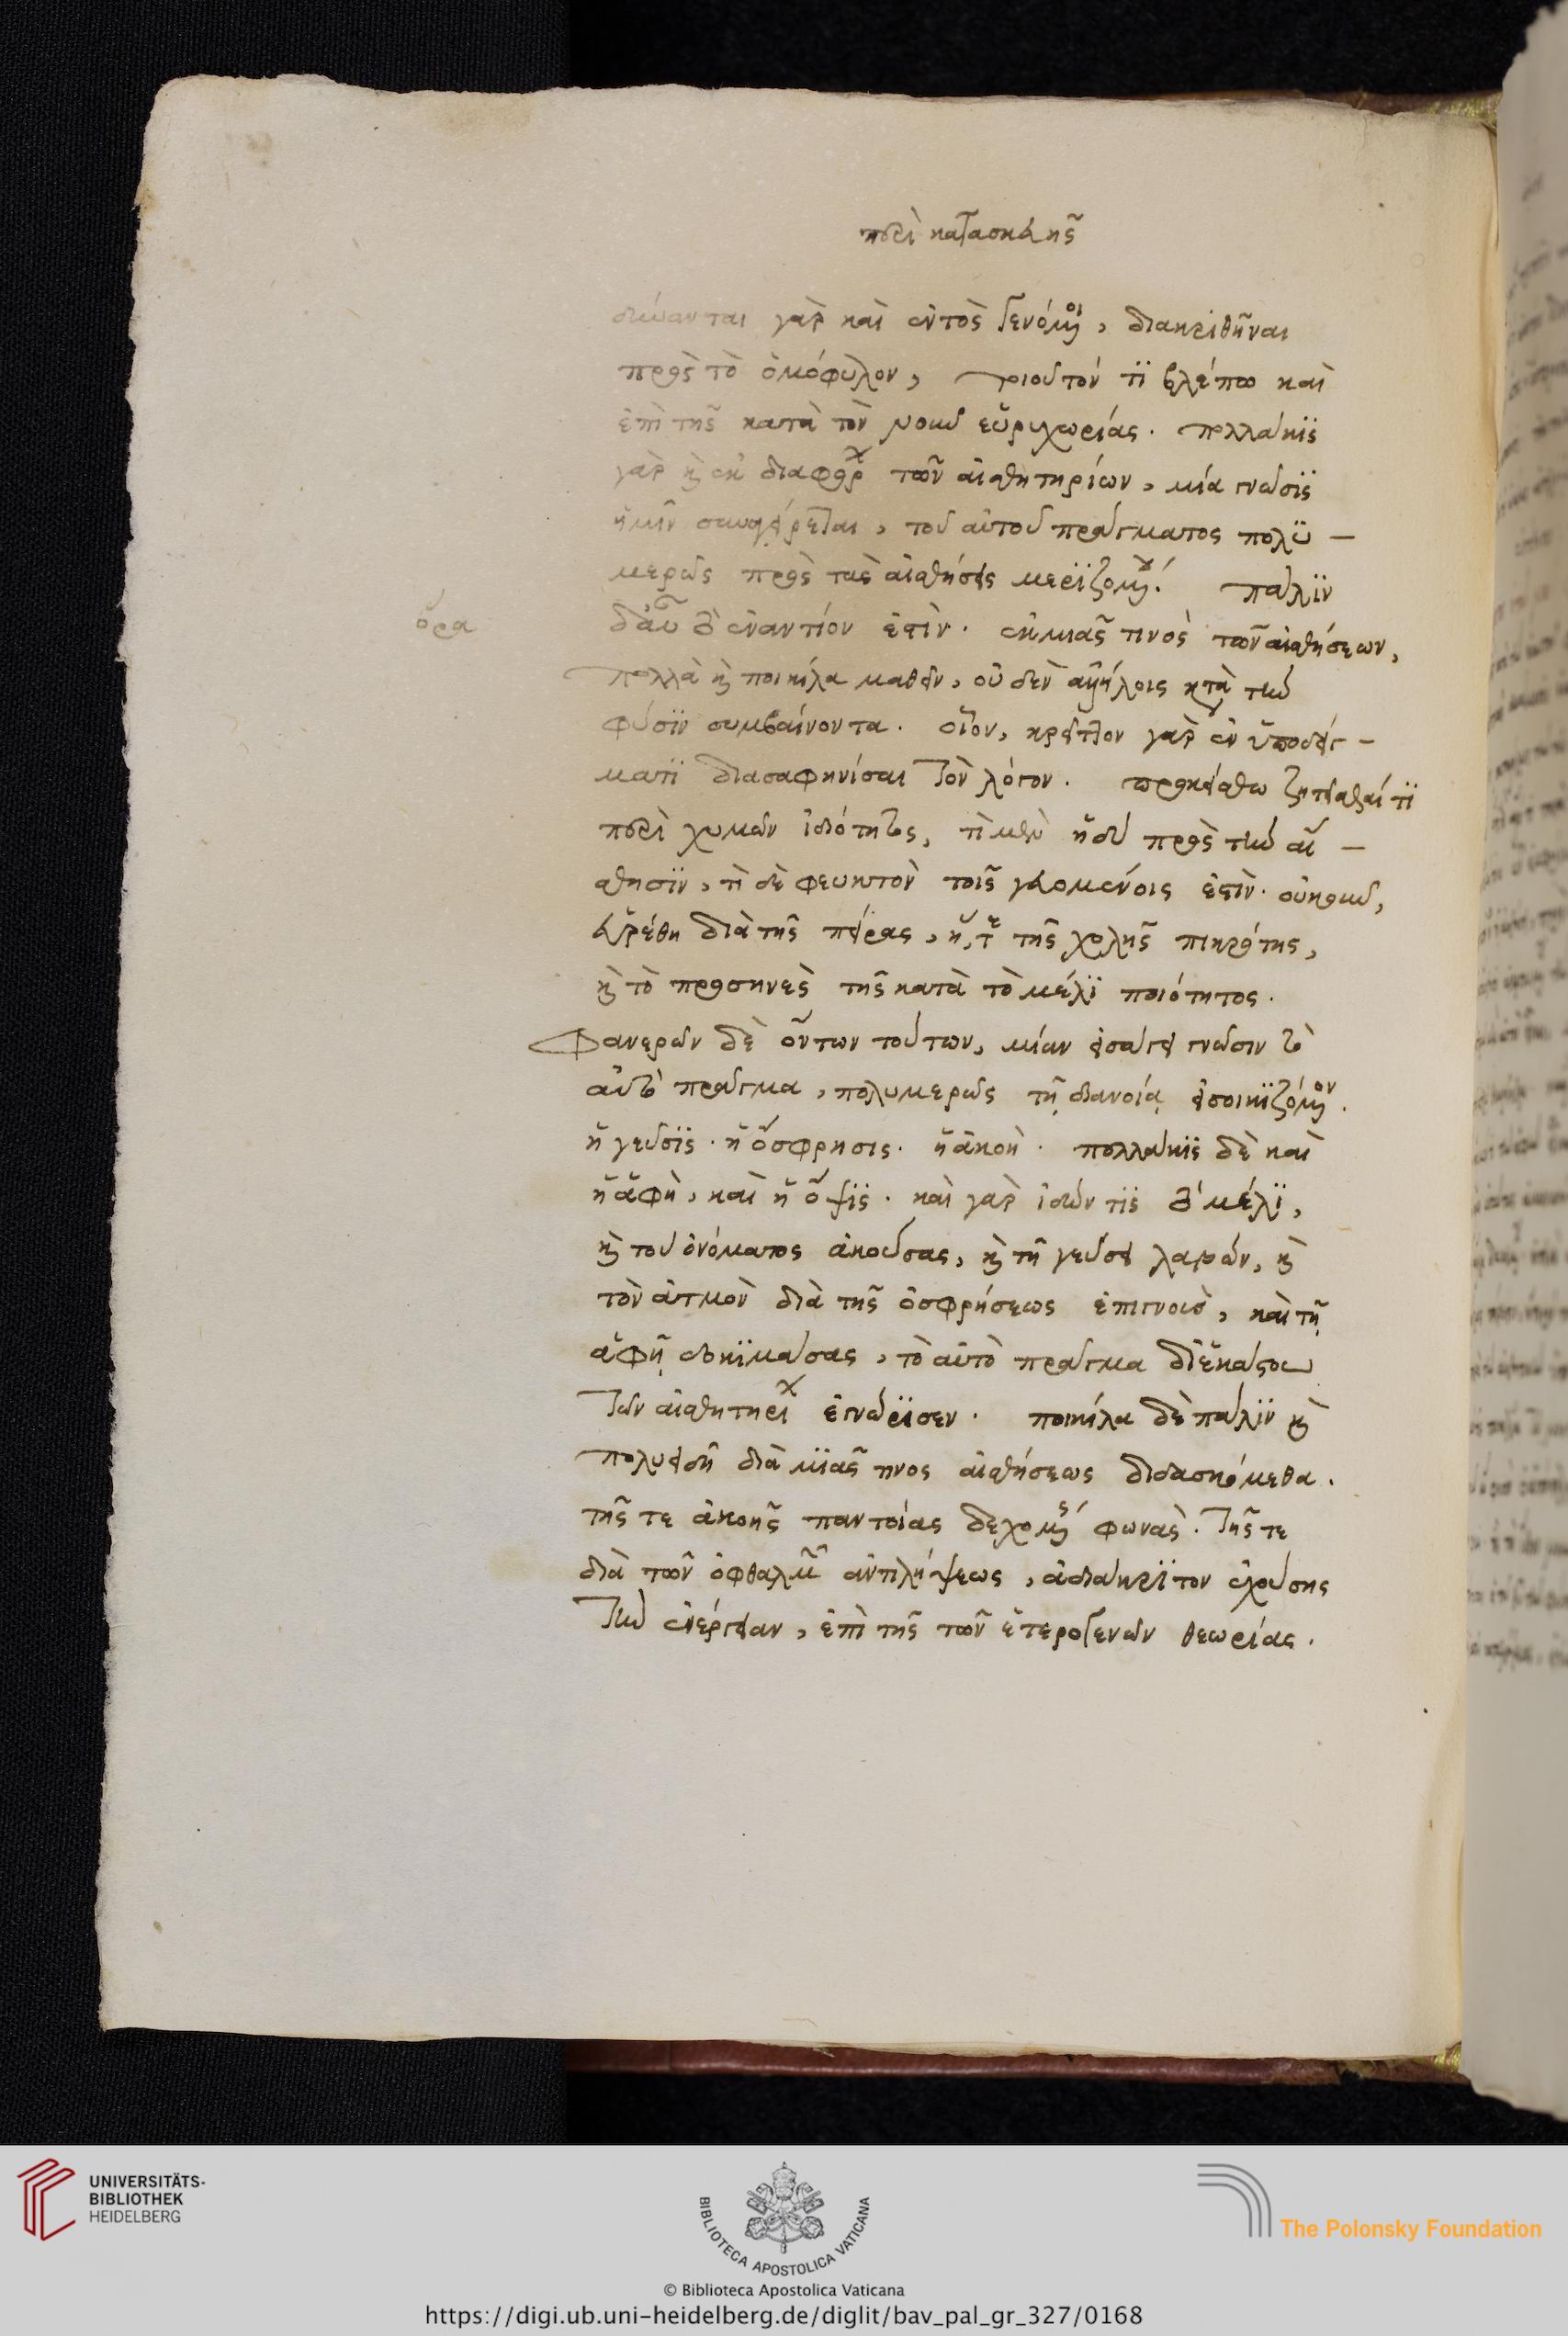 περὶ κατασκευῆς
δύνανται γὰρ καὶ ἐντὸς γενόμενοι, διακριθῆναι
πρὸς τὸ ὁμόφυλον, τοιοῦτόν τι βλέπω καὶ
ἐπὶ τῆς κατὰ τὸν νοῦν εὐρυχωρίας. πολλάκις
γὰρ καὶ ἐκ διαφόρων τῶν αἰσθητηρίων, μία γνῶσις
ἡμῖν συναγείρεται, τοῦ αὐτοῦ πράγματος πολυ–
μερῶς πρὸς τὰς αἰσθήσεις μεριζομένου. πάλιν
ὅρα
δ' αὖ τὸ ἐναντίον ἐστὶν. ἐκ μιᾶς τινὸς τῶν αἰσθήσεων,
πολλὰ καὶ ποικίλα μαθεῖν, οὐδὲν ἀλλήλοις κατὰ τὴν
φύσιν συμβαίνοντα. οἷον, κρεῖττον γὰρ ἐν ὑποδείγ–
ματι διασαφηνίσαι τὸν λόγον. προκείσθω ζητεῖσθαί τι
περὶ χυμῶν ἰδιότητος, τί μὲν ἡδὺ πρὸς τὴν αἴ–
σθησιν, τί δὲ φευκτὸν τοῖς γευομένοις ἐστὶν. οὐκοῦν,
εὑρέθη διὰ τῆς πείρας, ἥ τε τῆς χολῆς πικρότης,
καὶ τὸ προσηνὲς τῆς κατὰ τὸ μέλι ποιότητος.
Φανερῶν δὲ ὄντων τούτων, μίαν εἰσάγει γνῶσιν τὸ
αὐτὸ πρᾶγμα, πολυμερῶς τῇ διανοίᾳ εἰσοικιζόμενον.
ἡ γεῦσις. ἡ ὄσφρησις. ἡ ἀκοὴ. πολλάκις δὲ καὶ
ἡ ἁφὴ, καὶ ἡ ὄψις. καὶ γὰρ ἰδών τις τὸ μέλι,
καὶ τοῦ ὀνόματος ἀκούσας, καὶ τῇ γεύσει λαβών, καὶ
τὸν ἀτμὸν διὰ τῆς ὀσφρήσεως ἐπιγνοὺς, καὶ τῇ
ἁφῇ δοκιμάσας, τὸ αὐτὸ πρᾶγμα δι' ἑκάστου
τῶν αἰσθητηρίων ἐγνώρισεν. ποικίλα δὲ πάλιν καὶ
πολυειδῆ διὰ μιᾶς τινος αἰσθήσεως διδασκόμεθα.
τῆς τε ἀκοῆς παντοίας δεχομένης φωνὰς. τῆς τε
διὰ τῶν ὀφθαλμῶν ἀντιλήψεως, ἀδιάκριτον ἐχούσης
τὴν ἐνέργειαν, ἐπὶ τῆς τῶν ἑτερογενῶν θεωρίας.
UNIVERSITÄTS-
BIBLIOTHEK
HEIDELBERG
BIBLIOTECA APOSTOLICA VATICANA
The Polonsky Foundation
© Biblioteca Apostolica Vaticana
https://digi.ub.uni-heidelberg.de/diglit/bav_pal_gr_327/0168